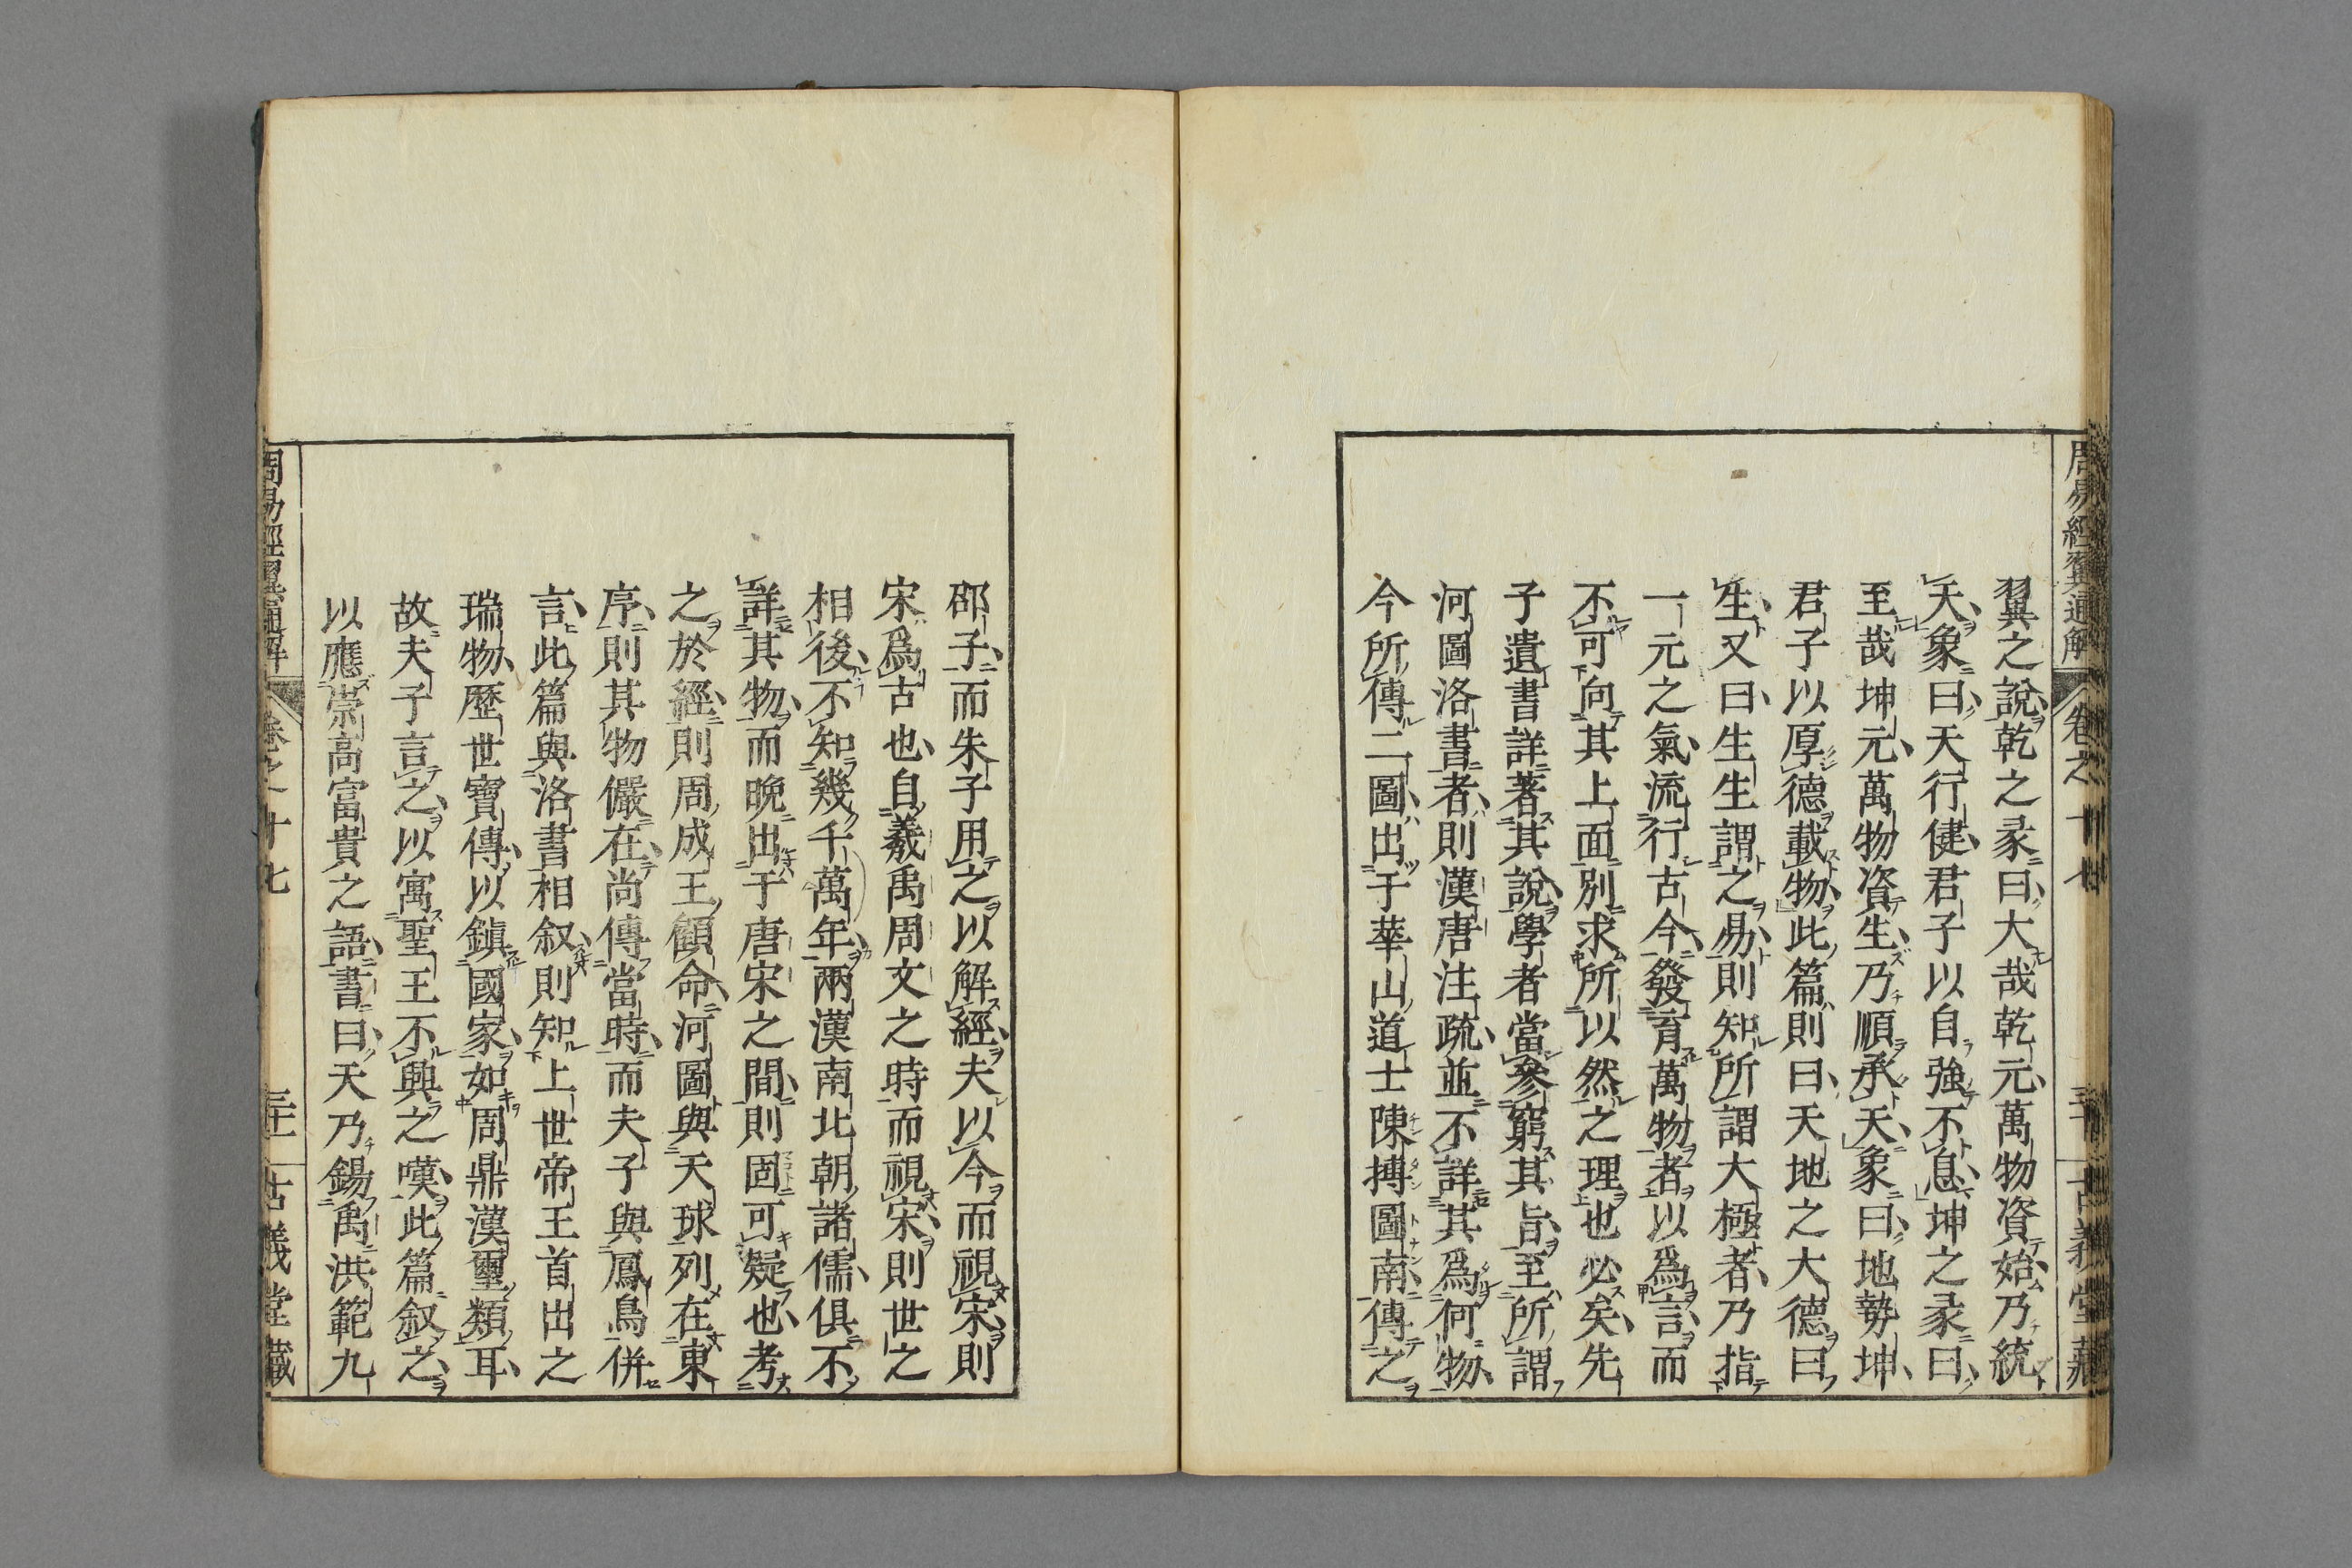 翼之說乾之彖曰大哉乾元萬物資始乃統
天象曰天行健君子以自強不息坤之彖曰
至哉坤元萬物資生乃順承天象曰地勢坤
君子以厚德載物此篇則曰天地之大德曰
生又曰生生謂之易則知所謂大極者乃指
一元之氣流行古今發育萬物者以爲言而
不可向其上面別求所以然之理也必矣先
子遺書詳著其說學者當參窮其旨至所謂
河圖洛書者則漢唐注疏並不詳其爲何物
今所傳二圖出于華山道士陳摶圖南傳之
周易經翼通解 卷之十七 古義堂藏
邵子而朱子用之以解經夫以今而視宋則
宋爲古也自羲禹周文之時而視宋則世之
相後不知幾千萬年兩漢南北朝諸儒俱不
詳其物而晚出于唐宋之間則固可疑也考
之於經則周成王顧命河圖與天球列在東
序則其物儼在尚傳當時而夫子與鳳鳥併
言此篇與洛書相叙則知上世帝王首出之
瑞物歷世寶傳以鎮國家如周鼎漢璽類耳
故夫子言之以寓聖王不興之嘆此篇叙之
以應崇高富貴之語書曰天乃錫禹洪範九
周易經翼通解 卷之十七 古義堂藏